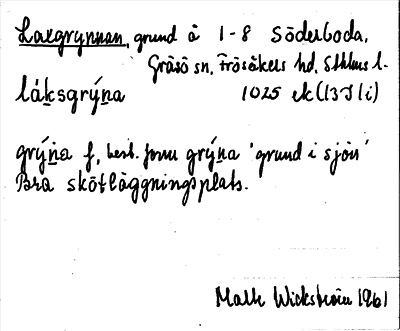 Laxgrynnan, grund å 1-8 Söderboda,
Gräsö sn, Frösåkers hd, Sthlms l.
láksgrýna 1025 ek (13I 1i)
grýna f, best. form grýna 'grund i sjön'
Bra skötläggningsplats.
Mats Wickström 1961